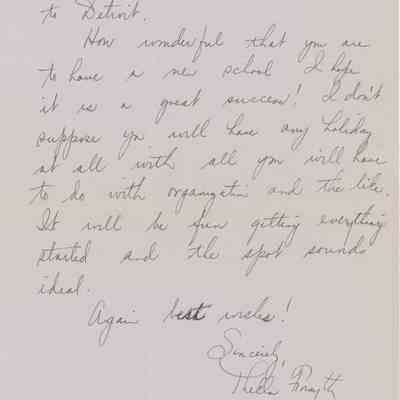 to Detroit.
How wonderful that you are
to have a new school I hope
it is a great success! I don't
suppose you will have any holiday
at all with all you will have
to do with organization and the like.
It will be fun getting everything
started and the spot sounds
ideal.
Again best wishes!
Sincerely,
Thella Forsyth